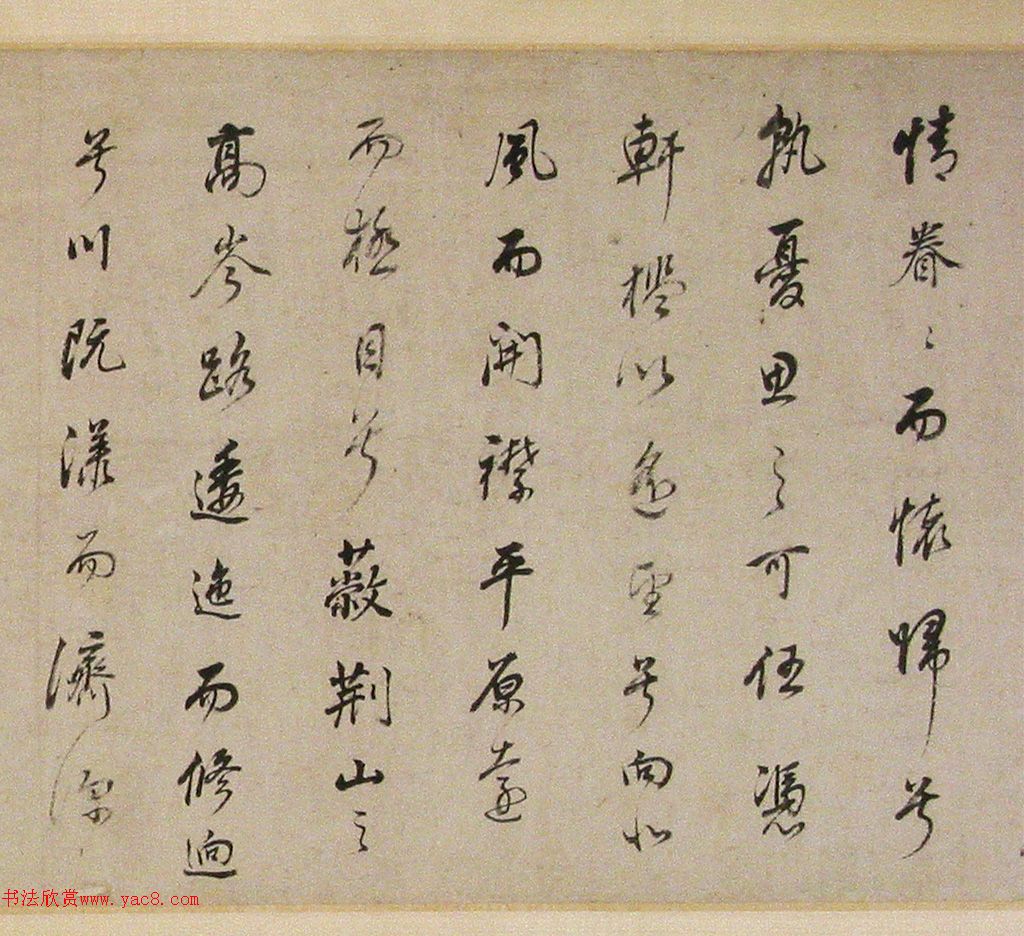 情眷〻而懷歸兮
孰憂思之可任憑
軒檻以遙望兮向北
風而開襟平原遠
而極目兮蔽荊山之
高岑路逶迤而修迥
兮川既漾而濟深
书法欣赏www.yac8.com